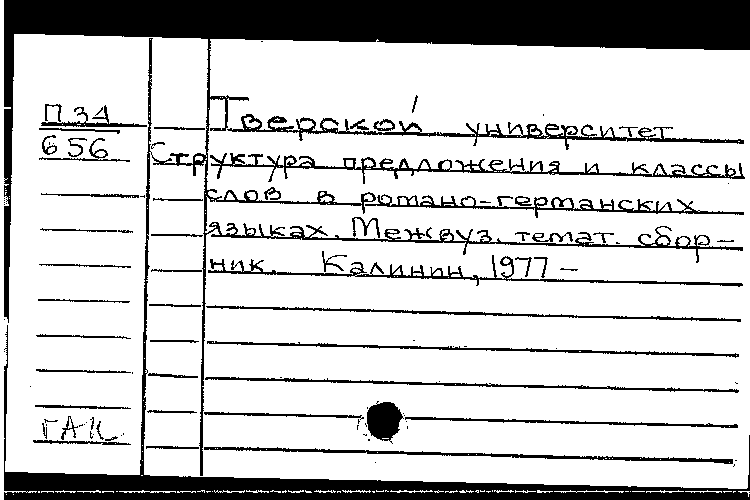 П34
656
Тверской университет
Структура предложения и классы
слов в романо-германских
языках. Межвуз. темат. сбор-
ник. Калинин, 1977 -
ГАК